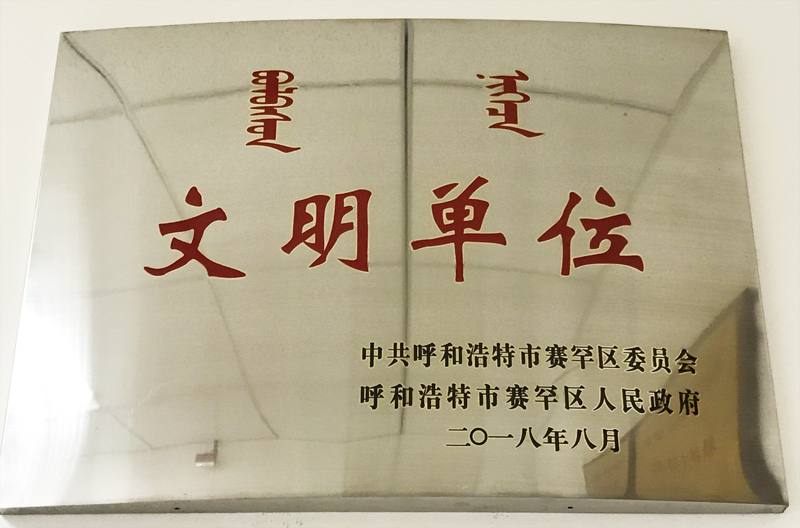 ᠰᠣᠶᠣᠯᠲᠤ ᠨᠢᠭᠡᠴᠡ
文明单位
中共呼和浩特市赛罕区委员会
呼和浩特市赛罕区人民政府
二〇一八年八月